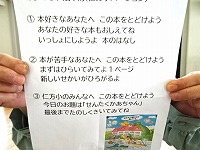 ① 本好きなあなたへ この本をとどけよう
あなたの好きな本もおしえてね
いっしょにしようよ 本のはなし
② 本が苦手なあなたへ この本をとどけよう
まずはひらいてみてよ1ページ
新しいせかいがひろがるよ
③ 仁方小のみんなへ この本をとどけよう
今日のお題は「せんたくかあちゃん」
最後までたのしくきいてみてね